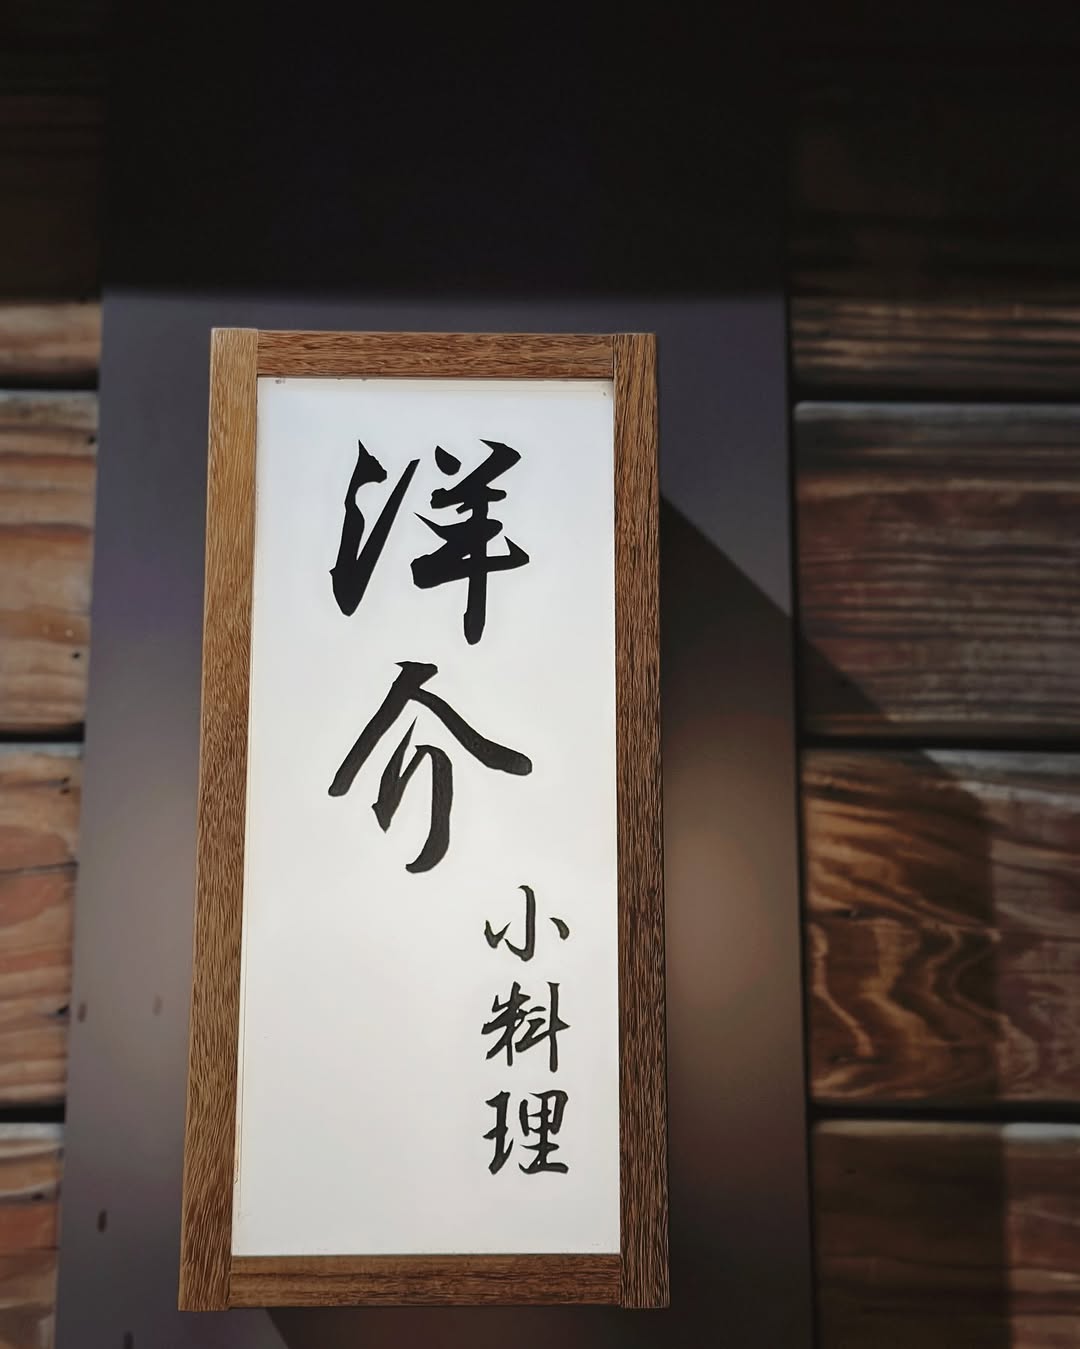 洋介
小料理